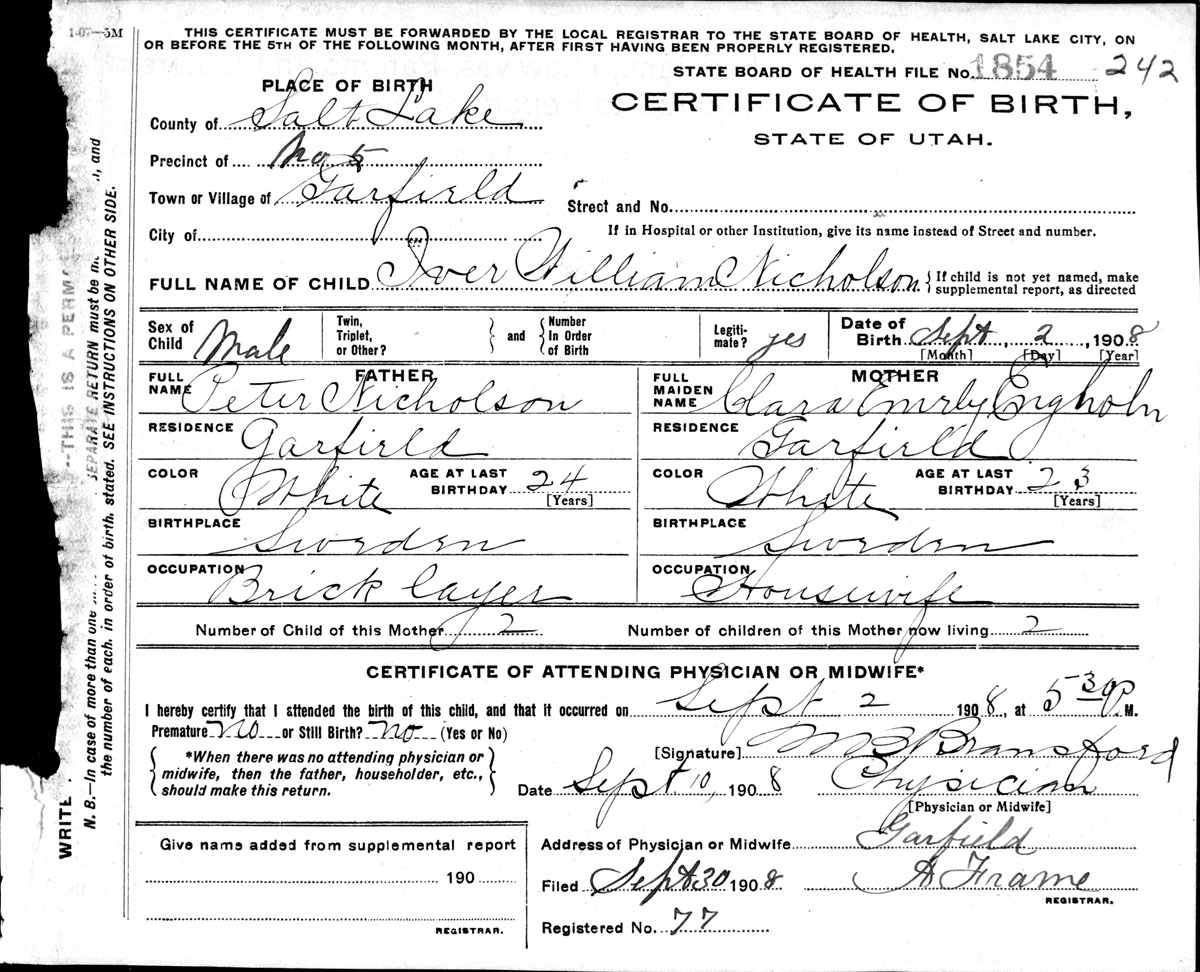 1-07—5M
THIS CERTIFICATE MUST BE FORWARDED BY THE LOCAL REGISTRAR TO THE STATE BOARD OF HEALTH, SALT LAKE CITY, ON
OR BEFORE THE 5TH OF THE FOLLOWING MONTH, AFTER FIRST HAVING BEEN PROPERLY REGISTERED.
STATE BOARD OF HEALTH FILE No. 1854 242
PLACE OF BIRTH
CERTIFICATE OF BIRTH,
STATE OF UTAH.
County of Salt Lake
Precinct of No 5
Town or Village of Garfield
Street and No.
City of
If in Hospital or other Institution, give its name instead of Street and number.
FULL NAME OF CHILD Iver William Nicholson { If child is not yet named, make
supplemental report, as directed
Sex of Child Male Twin, Triplet, or Other? } and { Number In Order of Birth Legiti-mate? yes Date of Birth Sept, 2, 1908
[Month] [Day] [Year]
FATHER MOTHER
FULL NAME Peter Nicholson FULL MAIDEN NAME Clara Emrly Engholn
RESIDENCE Garfield RESIDENCE Garfield
COLOR White AGE AT LAST BIRTHDAY 24 [Years] COLOR White AGE AT LAST BIRTHDAY 23 [Years]
BIRTHPLACE Sweden BIRTHPLACE Sweden
OCCUPATION Brick layer OCCUPATION Housewife
Number of Child of this Mother 2 Number of children of this Mother now living 2
CERTIFICATE OF ATTENDING PHYSICIAN OR MIDWIFE*
I hereby certify that I attended the birth of this child, and that it occurred on Sept 2 1908, at 5 30 P. M.
Premature No or Still Birth? No (Yes or No)
*When there was no attending physician or
midwife, then the father, householder, etc.,
should make this return.
[Signature] M B Bransford
Date Sept 10, 1908 Physician
[Physician or Midwife]
Give name added from supplemental report
190
REGISTRAR.
Address of Physician or Midwife Garfield
Filed Sept 30 1908 A Frame
REGISTRAR.
Registered No. 77
WRITE
—THIS IS A PERM
N. B.—In case of more than one
SEPARATE RETURN must be m
, and
the number of each, in order of birth, stated. SEE INSTRUCTIONS ON OTHER SIDE.